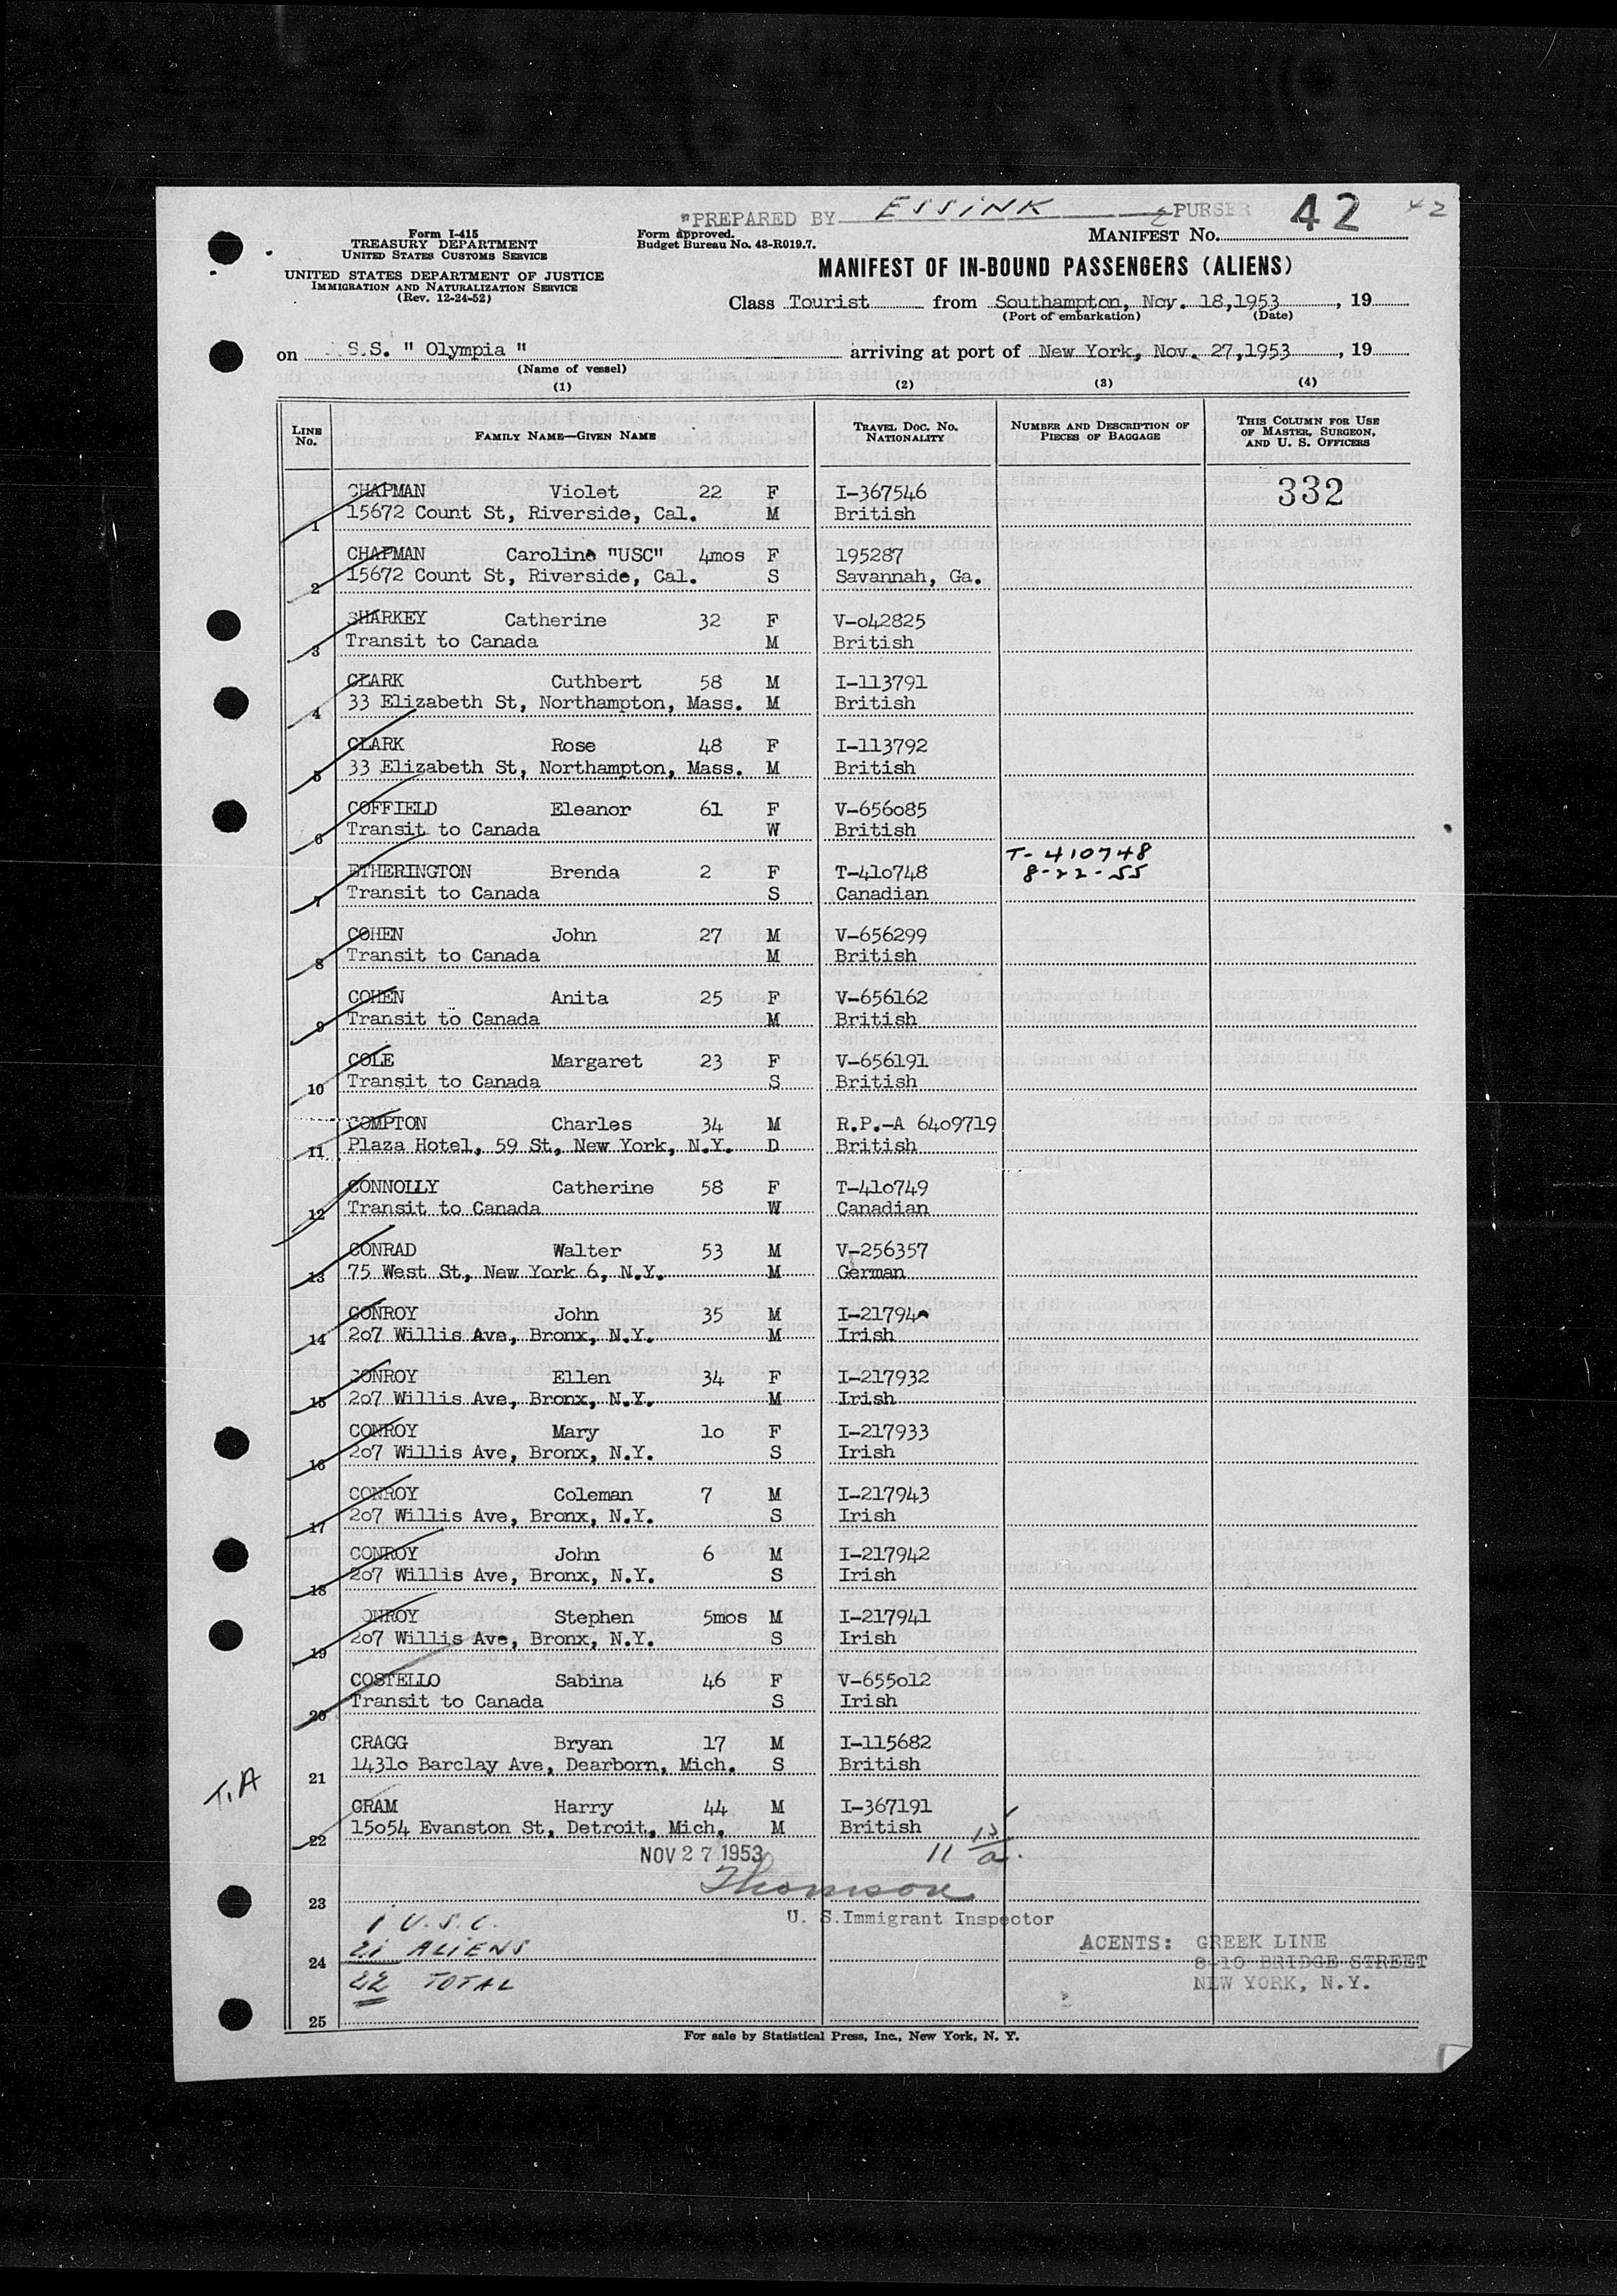 "PREPARED BY ESSINK PURSER 42 42
Form I-415
TREASURY DEPARTMENT
UNITED STATES CUSTOMS SERVICE
UNITED STATES DEPARTMENT OF JUSTICE
IMMIGRATION AND NATURALIZATION SERVICE
(Rev. 12-24-52)
Form approved.
Budget Bureau No. 43-R019.7.
MANIFEST NO.
MANIFEST OF IN-BOUND PASSENGERS (ALIENS)
Class Tourist from Southampton, Nov. 18,1953, 19
(Port of embarkation) (Date)
on S.S. " Olympia " arriving at port of New York, Nov. 27,1953, 19
(Name of vessel)
(1) (2) (3) (4)
LINE NO. FAMILY NAME—GIVEN NAME TRAVEL DOC. NO. NATIONALITY NUMBER AND DESCRIPTION OF PIECES OF BAGGAGE THIS COLUMN FOR USE OF MASTER, SURGEON, AND U. S. OFFICERS
CHAPMAN Violet 22 F I-367546 332
1 15672 Count St, Riverside, Cal. M British
CHAPMAN Caroline "USC" 4mos F 195287
2 15672 Count St, Riverside, Cal. S Savannah, Ga.
SHARKEY Catherine 32 F V-o42825
3 Transit to Canada M British
CLARK Cuthbert 58 M I-113791
4 33 Elizabeth St, Northampton, Mass. M British
CLARK Rose 48 F I-113792
5 33 Elizabeth St, Northampton, Mass. M British
COFFIELD Eleanor 61 F V-656o85
6 Transit to Canada W British
T-410748
ETHERINGTON Brenda 2 F T-41o748 8-22-55
7 Transit to Canada S Canadian
COHEN John 27 M V-656299
8 Transit to Canada M British
COHEN Anita 25 F V-656162
9 Transit to Canada M British
COLE Margaret 23 F V-656191
10 Transit to Canada S British
COMPTON Charles 34 M R.P.-A 64o9719
11 Plaza Hotel, 59 St, New York, N.Y. D British
CONNOLLY Catherine 58 F T-41o749
12 Transit to Canada W Canadian
CONRAD Walter 53 M V-256357
13 75 West St, New York 6, N.Y. M German
CONROY John 35 M I-21794
14 2o7 Willis Ave, Bronx, N.Y. M Irish
CONROY Ellen 34 F I-217932
15 2o7 Willis Ave, Bronx, N.Y. M Irish
CONROY Mary 1o F I-217933
16 2o7 Willis Ave, Bronx, N.Y. S Irish
CONROY Coleman 7 M I-217943
17 2o7 Willis Ave, Bronx, N.Y. S Irish
CONROY John 6 M I-217942
18 2o7 Willis Ave, Bronx, N.Y. S Irish
CONROY Stephen 5mos M I-217941
19 2o7 Willis Ave, Bronx, N.Y. S Irish
COSTELLO Sabina 46 F V-655o12
20 Transit to Canada S Irish
CRAGG Bryan 17 M I-115682
21 1431o Barclay Ave, Dearborn, Mich. S British
T.A
GRAM Harry 44 M I-367191
22 15o54 Evanston St, Detroit, Mich. M British
NOV 27 1953 11
Thomson
23
U. S. Immigrant Inspector
1 U.S.C.
21 ALIENS
24
22 TOTAL
ACENTS: GREEK LINE
8-10 BRIDGE STREET
NEW YORK, N.Y.
25
For sale by Statistical Press, Inc., New York, N. Y.